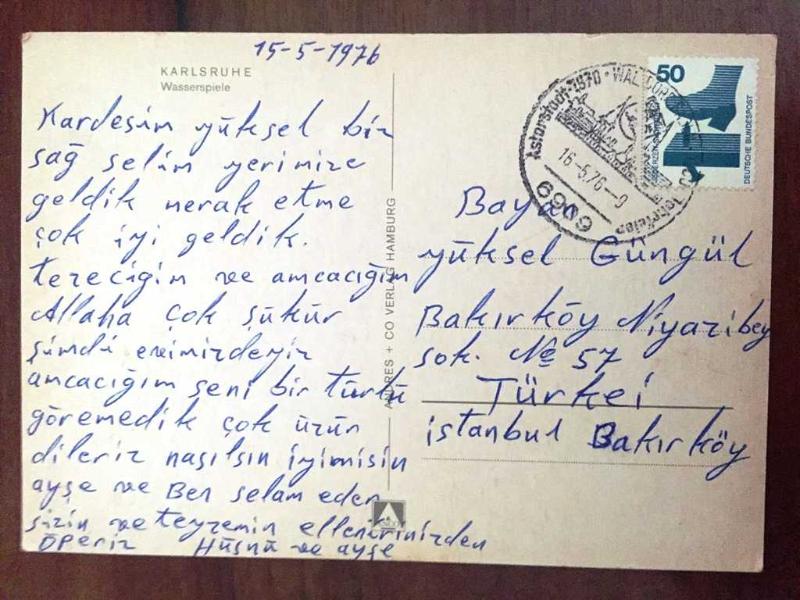 15-5-1976
KARLSRUHE
Wasserspiele
Kardeşim yüksel biz
sağ selim yerimize
geldik merak etme
çok iyi geldik.
tezeciğim ve amcacığım
Allaha çok şükür
şimdü evimizdeyiz
amcacığım seni bir türlü
göremedik çok üzür
dileriz nasılsın iyimisin
ayşe ve Ben selam eder
sizin ve teyzemin ellerinizden
öperiz Hüsnü ve ayşe
ANDRES + CO VERLAG HAMBURG
Astorstadt 1970 · WALLDORF
16.5.76-9
6909
50
DEUTSCHE BUNDESPOST
Bayan
yüksel Güngül
Bakırköy Niyazibey
sok. № 57
Türkei
istanbul Bakırköy